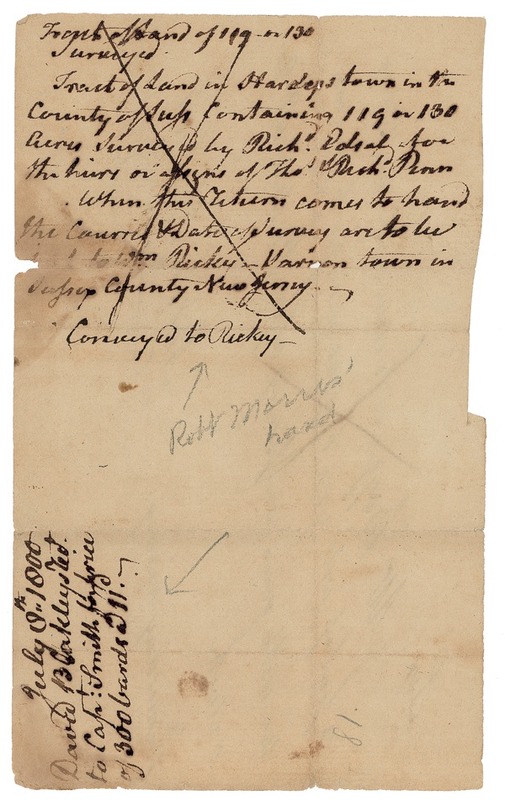 Tract of Land of 119 or 130
Surveyed
Tract of Land in Hardeys town in the
County of Suss Containing 119 or 130
Acres Survey'd by Rich.d Edsal, for
the hiers or assigns of Tho.s & Rich.d Penn
When this Return comes to hand
the Courses & Date of Survey are to be
to Wm Rickey - Varnon town in
Sussex County New Jersey
Conveyed to Rickey -
Robt Morris'
hand
July 8th 1800
David B
to Capt: Smith for price
of 300 bards a 11.
81.